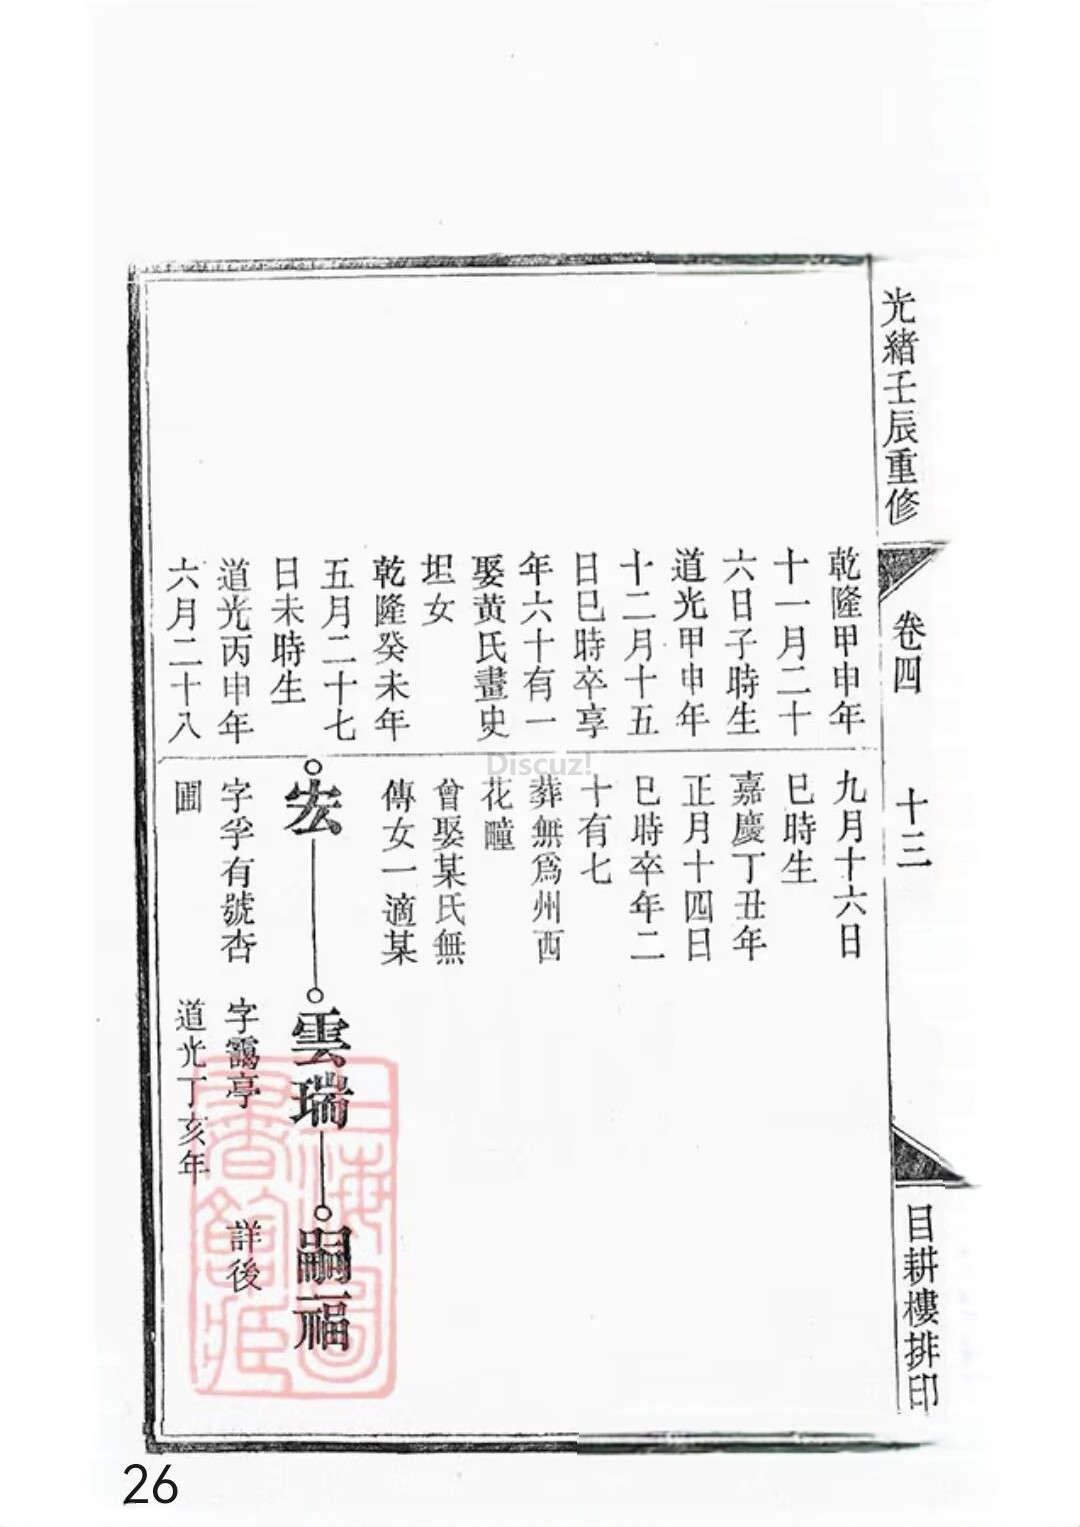 光緒壬辰重修
卷四
十三
目耕樓排印
乾隆甲申年
十一月二十
六日子時生
道光甲申年
十二月十五
日巳時卒享
年六十有一
娶黃氏畫史
坦女
乾隆癸未年
五月二十七
日未時生
道光丙申年
六月二十八
九月十六日
巳時生
嘉慶丁丑年
正月十四日
巳時卒年二
十有七
葬無爲州西
花疃
曾娶某氏無
傳女一適某
宏
字孚有號杏
圃
雲瑞
字靄亭
道光丁亥年
嗣福
詳後
上海圖
書館藏
Discuz!
26